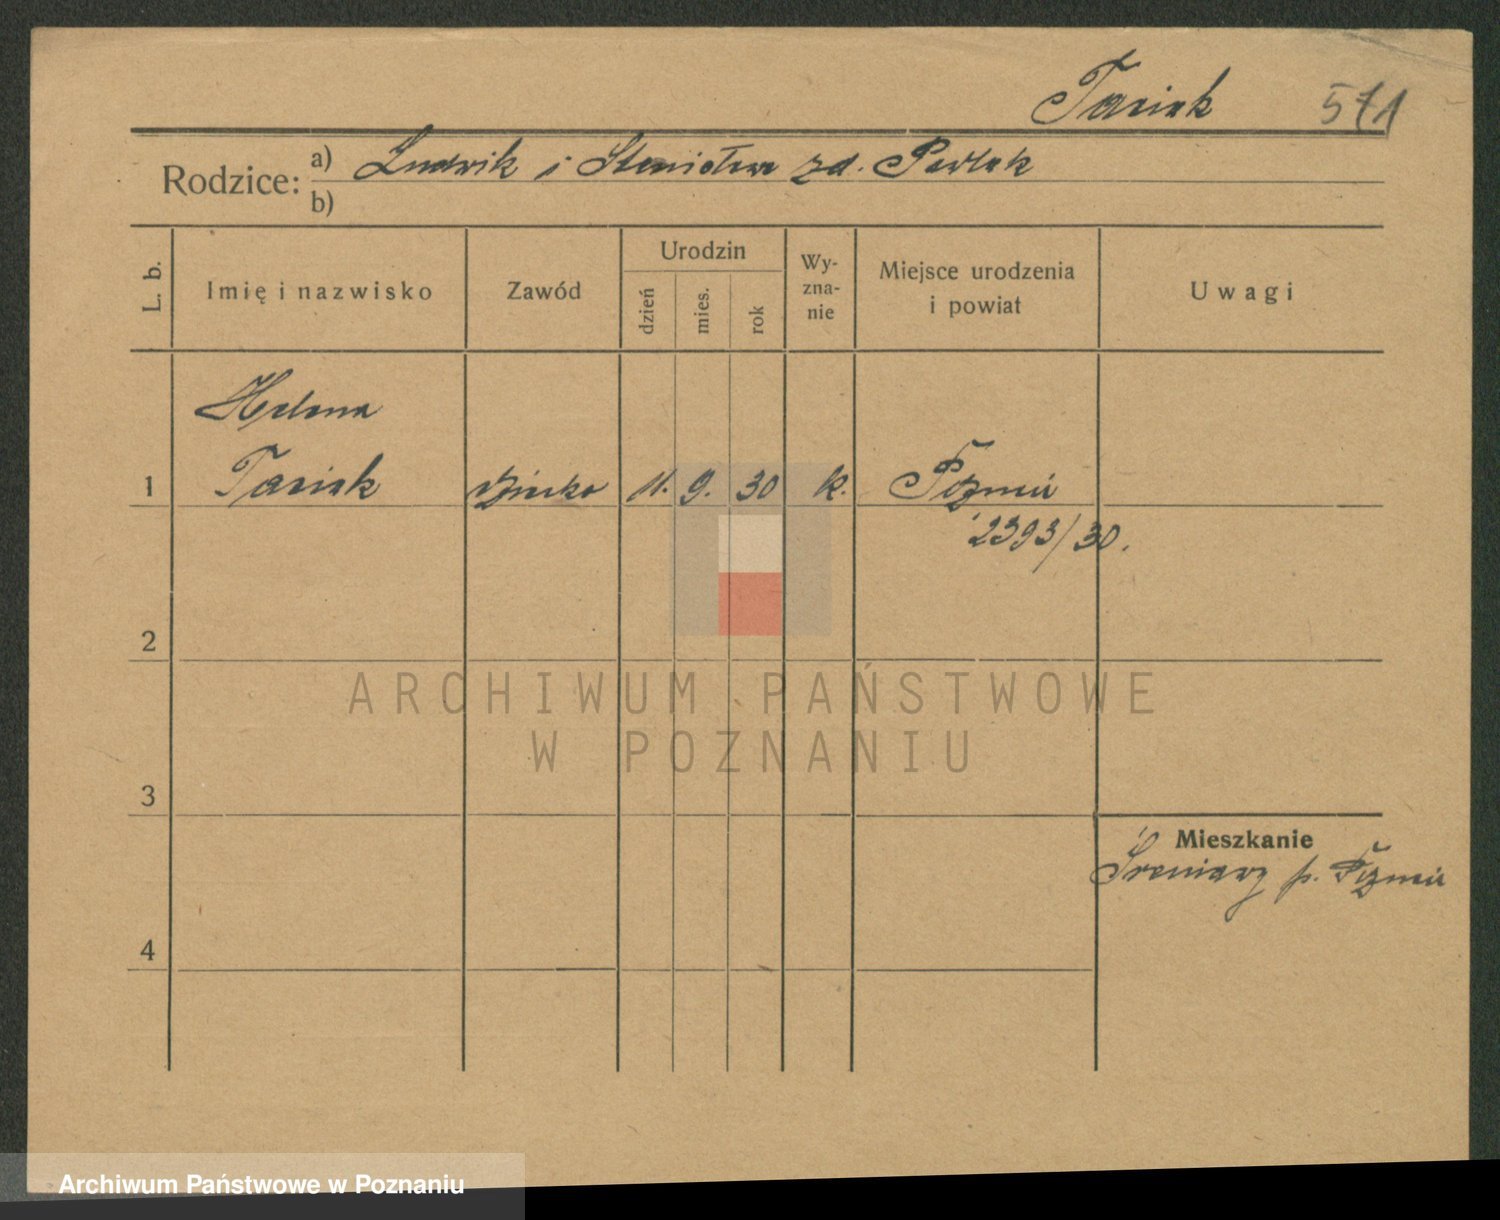 Tasiak 571
Rodzice: a) Ludwik i Stanisława zd. Pawlak
b)
L. b. Imię i nazwisko Zawód Urodzin dzień mies. rok Wy-zna-nie Miejsce urodzenia i powiat Uwagi
Helena
1 Tasiak dziecko 11. 9. 30 k. Poznań
2393/30.
2
ARCHIWUM PAŃSTWOWE
W POZNANIU
3
Mieszkanie
p. Poznań
4
Archiwum Państwowe w Poznaniu